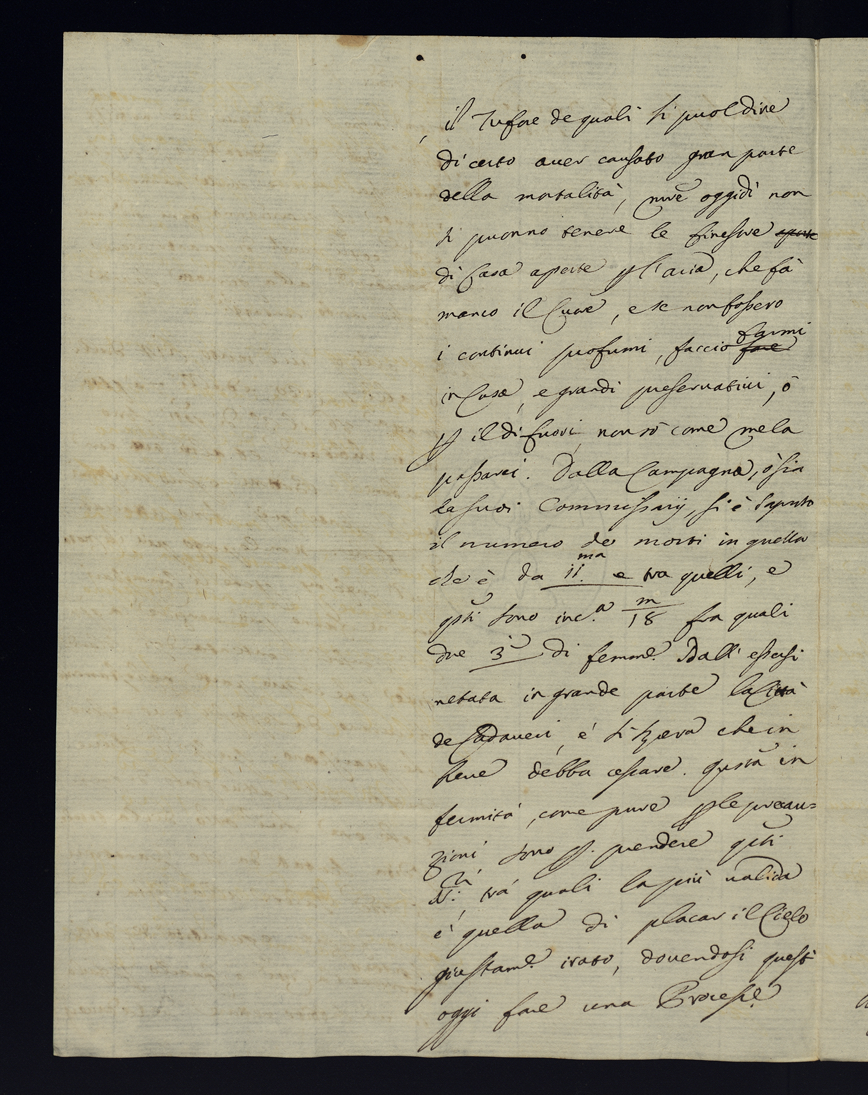 il Tufore de quali si puol dire
di certo aver causato gran parte
della mortalità, oggidì non
si puonno tenere le finestre aperte
di Casa aperte p l'aria, che fà
manco il Cuore, e se non fossero
i continui profumi, faccio fare farmi
in Casa, e grandi preservativi, ò
p il di fuori, non sò come me la
passarei. Dalla Campagna, ò sia
da suoi Commissarij, si è saputo
il numero de morti in quella
che è da 11.ma e tra quelli, e
qsti sono inc.a m/18 fra quali
due 3i di femme. Dall'essersi
netata in grande parte la Città
de Cadaveri, é si spera che in
breve debba cessare. questa in
fermità, come pure p le precau=
zioni sono p. prendere qsti
SS:ri trà quali la più valida
è quella di placar il Cielo
giustam.e irato, dovendosi questi
oggi fare una Process.e